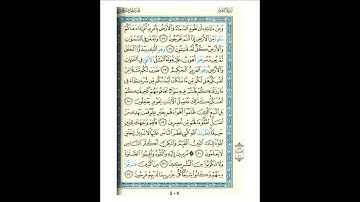 وَمِنْ ءَايَٰتِهِۦٓ أَن تَقُومَ ٱلسَّمَآءُ وَٱلْأَرْضُ بِأَمْرِهِۦ ثُمَّ إِذَا دَعَاكُمْ
دَعْوَةً مِّنَ ٱلْأَرْضِ إِذَآ أَنتُمْ تَخْرُجُونَ ٢٥ وَلَهُۥ مَن فِى ٱلسَّمَٰوَٰتِ
وَٱلْأَرْضِ كُلٌّ لَّهُۥ قَٰنِتُونَ ٢٦ وَهُوَ ٱلَّذِى يَبْدَؤُا۟ ٱلْخَلْقَ
ثُمَّ يُعِيدُهُۥ وَهُوَ أَهْوَنُ عَلَيْهِ وَلَهُ ٱلْمَثَلُ ٱلْأَعْلَىٰ فِى ٱلسَّمَٰوَٰتِ
وَٱلْأَرْضِ وَهُوَ ٱلْعَزِيزُ ٱلْحَكِيمُ ٢٧ ضَرَبَ لَكُم مَّثَلًا
مِّنْ أَنفُسِكُمْ هَل لَّكُم مِّن مَّا مَلَكَتْ أَيْمَٰنُكُم مِّن شُرَكَآءَ فِى
مَا رَزَقْنَٰكُمْ فَأَنتُمْ فِيهِ سَوَآءٌ تَخَافُونَهُمْ كَخِيفَتِكُمْ أَنفُسَكُمْ
كَذَٰلِكَ نُفَصِّلُ ٱلْءَايَٰتِ لِقَوْمٍ يَعْقِلُونَ ٢٨ بَلِ ٱتَّبَعَ
ٱلَّذِينَ ظَلَمُوٓا۟ أَهْوَآءَهُم بِغَيْرِ عِلْمٍ فَمَن يَهْدِى مَنْ أَضَلَّ
ٱللَّهُ وَمَا لَهُم مِّن نَّٰصِرِينَ ٢٩ فَأَقِمْ وَجْهَكَ لِلدِّينِ
حَنِيفًا فِطْرَتَ ٱللَّهِ ٱلَّتِى فَطَرَ ٱلنَّاسَ عَلَيْهَا لَا تَبْدِيلَ
لِخَلْقِ ٱللَّهِ ذَٰلِكَ ٱلدِّينُ ٱلْقَيِّمُ وَلَٰكِنَّ أَكْثَرَ ٱلنَّاسِ
لَا يَعْلَمُونَ ٣٠ مُنِيبِينَ إِلَيْهِ وَٱتَّقُوهُ وَأَقِيمُوا۟ ٱلصَّلَوٰةَ
وَلَا تَكُونُوا۟ مِنَ ٱلْمُشْرِكِينَ ٣١ مِنَ ٱلَّذِينَ فَرَّقُوا۟
دِينَهُمْ وَكَانُوا۟ شِيَعًا كُلُّ حِزْبٍۭ بِمَا لَدَيْهِمْ فَرِحُونَ ٣٢
٤٠٧